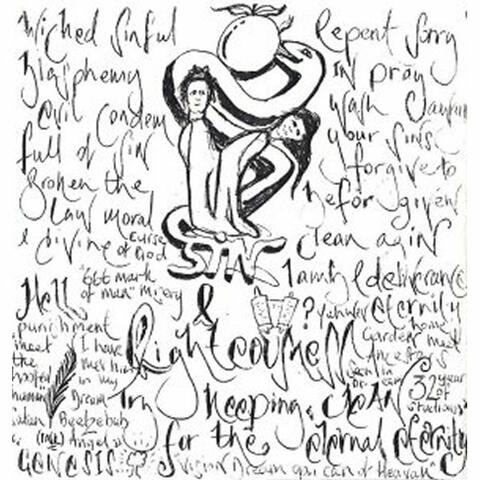 Wicked Sinful
Blasphemy
Evil Condem
full of Sin
Broken the
Law Moral
& divine
curse
of God
Repent Sorry
in pray
wash
your Sins
forgive to
be forgiven
Clean agin
SIN
"666 mark
of man" Misery
&
? Yahweh eternity
I am & deliverance
Hell
punishment
meet
the
hoofed
human
I have
met him
in my
Dream
Beelzebub
Angel
GENESIS
home
Garden meet
Ancestors
32 year
of
Righteousness
Try keeping CLEAN
for the eternal eternity
vision Dream of Heaven"